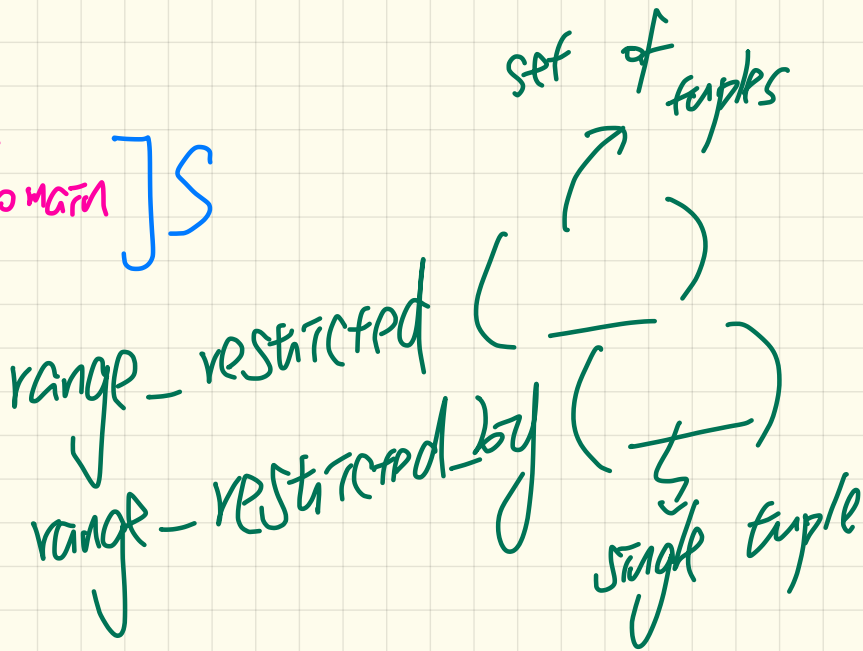 set of tuples
omain ] S
range_restricted ( _ )
range_restricted_by ( _ )
single tuple